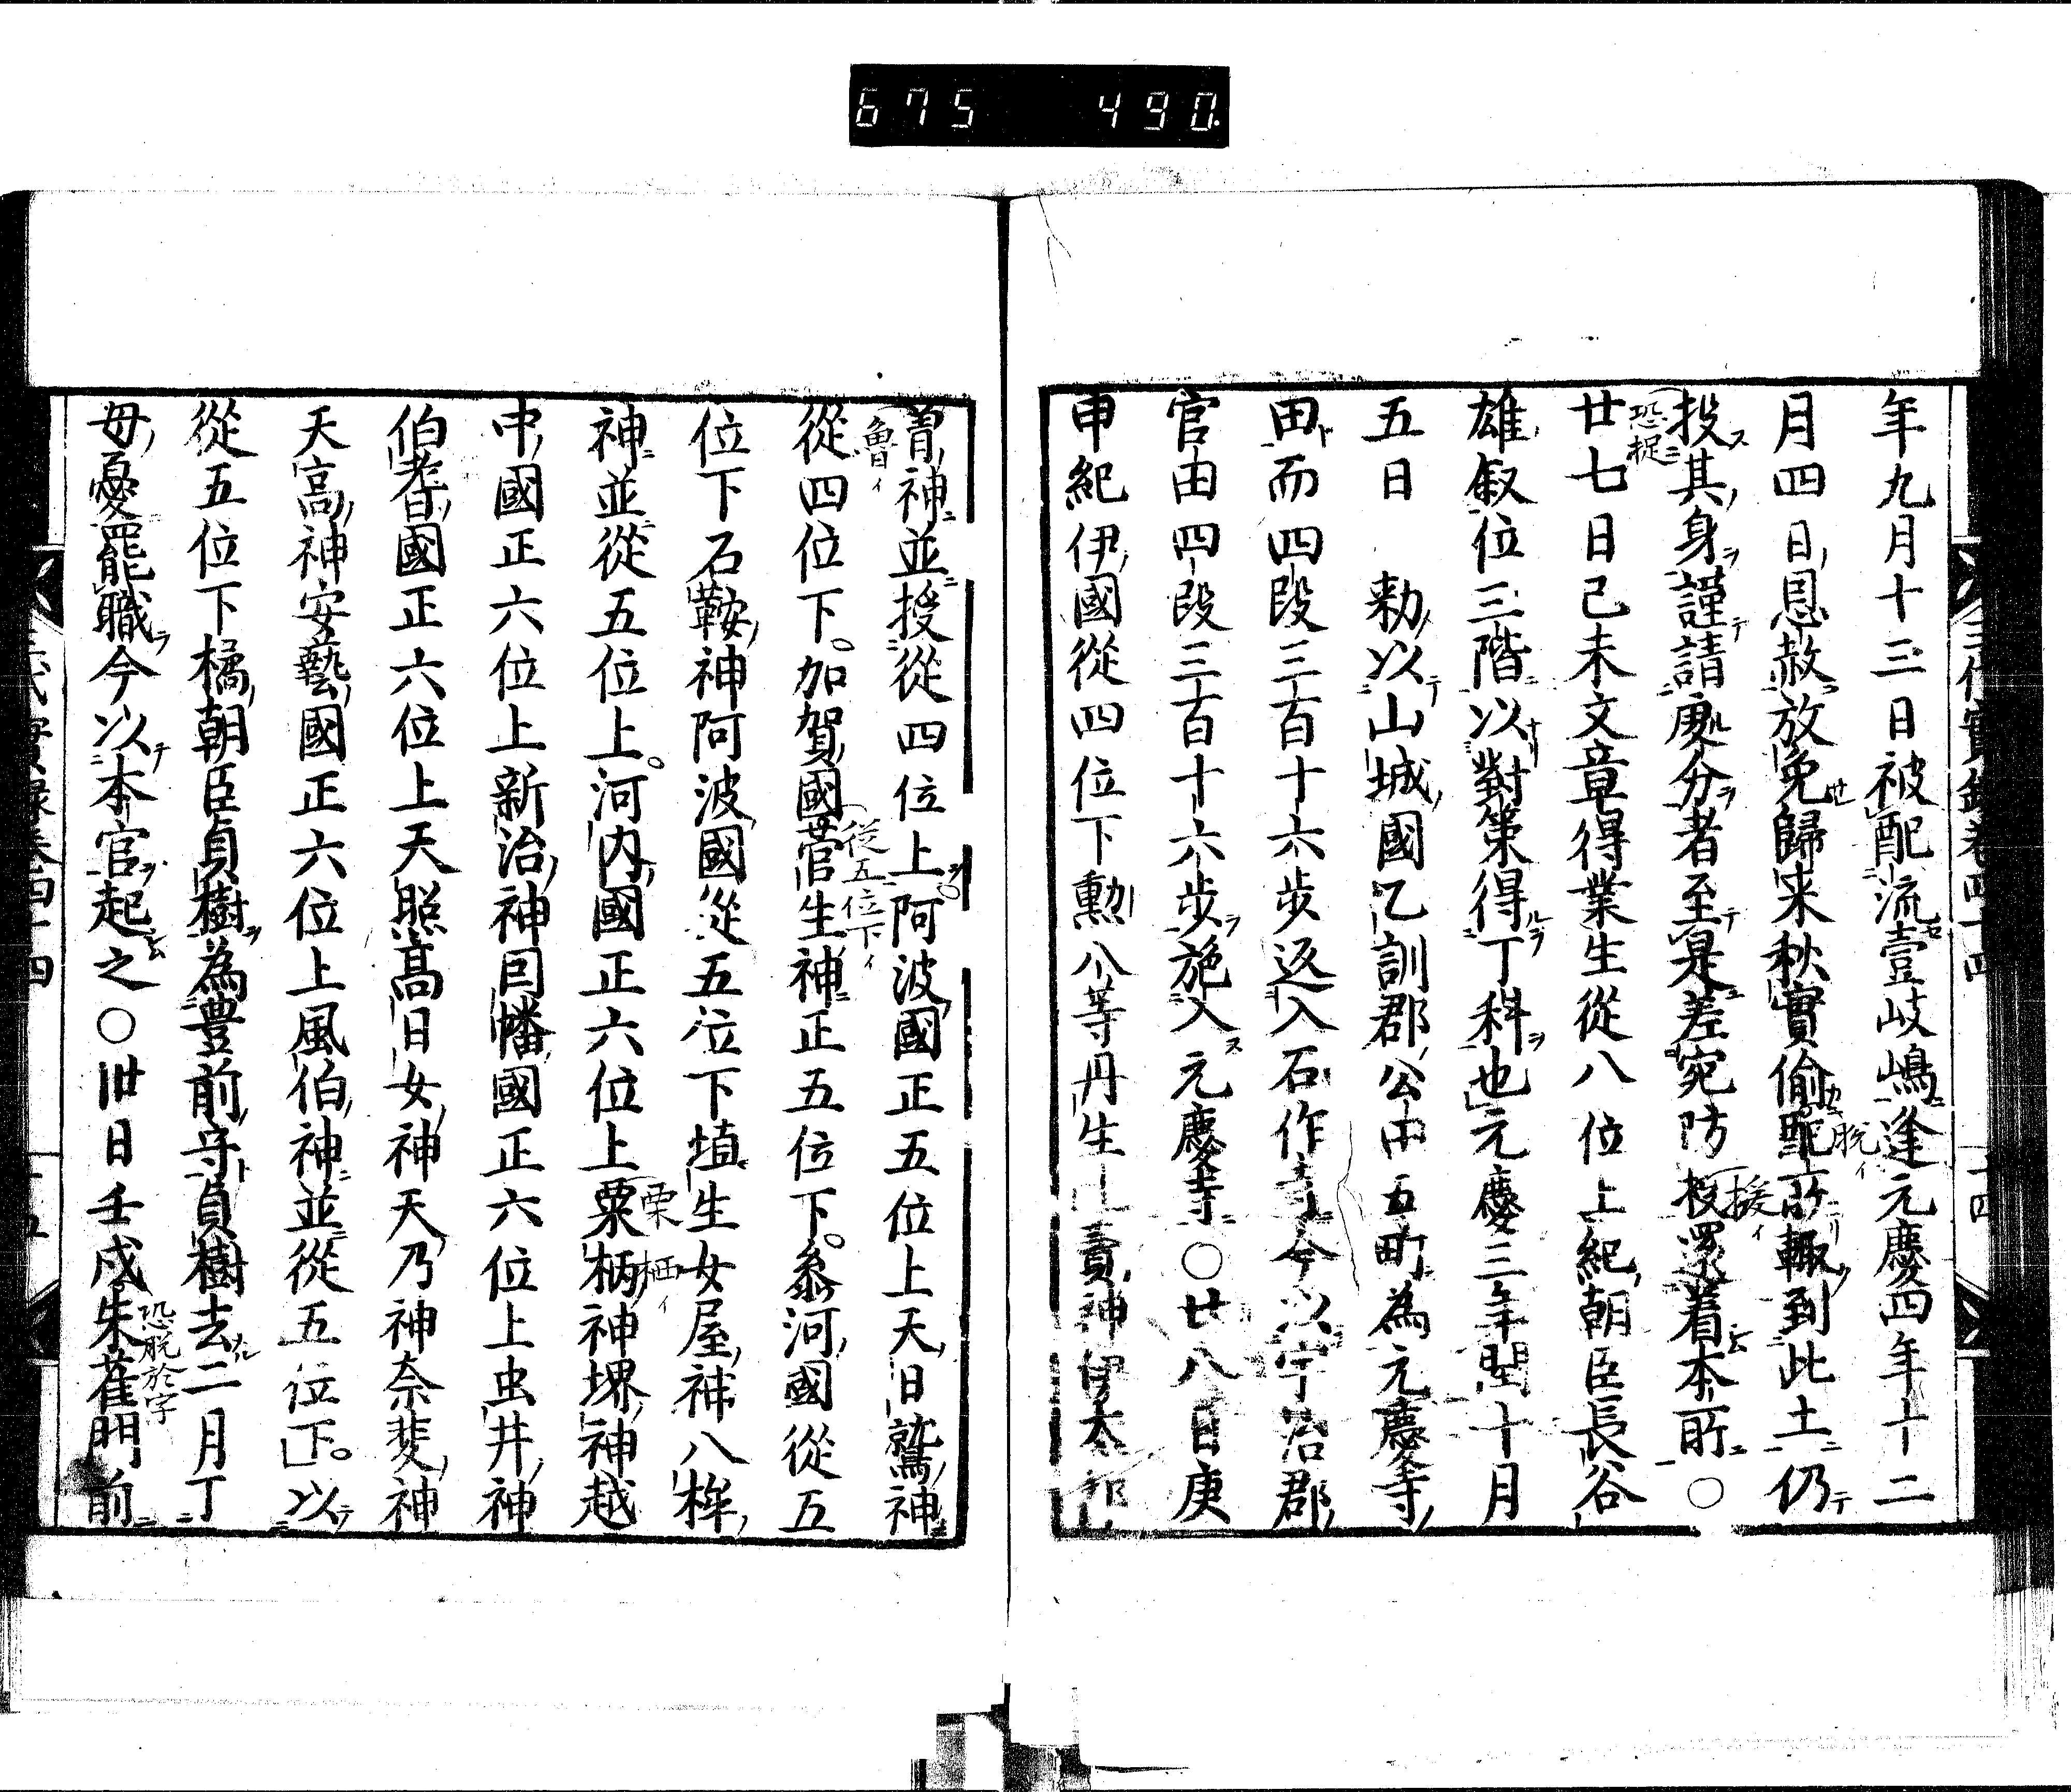 675 490
年九月十三日被配流壹岐嶋逢元慶四年十二
月四日恩赦放免歸来秋實偷配所輙到此土仍
投其身謹請處分者至是差宛防授還着本所○
廿七日己未文章得業生從八位上紀朝臣長谷
雄叙位三階以對策得丁科也元慶三年閏十月
五日 勅以山城國乙訓郡公田五町為元慶寺
田而四段三百十六歩返入石作寺今以宇治郡
官田四段三百十六歩施入元慶寺○廿八日庚
申紀伊國從四位下勳八等丹生比賣神伊太祁
曽神並授從四位上阿波國正五位上天日鷲神
從四位下加賀國菅生神正五位下叅河國從五
位下石鞍神阿波國從五位下埴生女屋神八桙
神並從五位上河内國正六位上粟柄神堺神越
中國正六位上新治神因幡國正六位上虫井神
伯耆國正六位上天照高日女神天乃神奈斐神
天高神安藝國正六位上風伯神並從五位下以
從五位下橘朝臣貞樹為豊前守貞樹去二月丁
母憂罷職今以本官起之○卅日壬戌朱雀門前
恐捉
脱イ
授イ
魯イ
從五位下イ
栗栖イ
恐脱於字